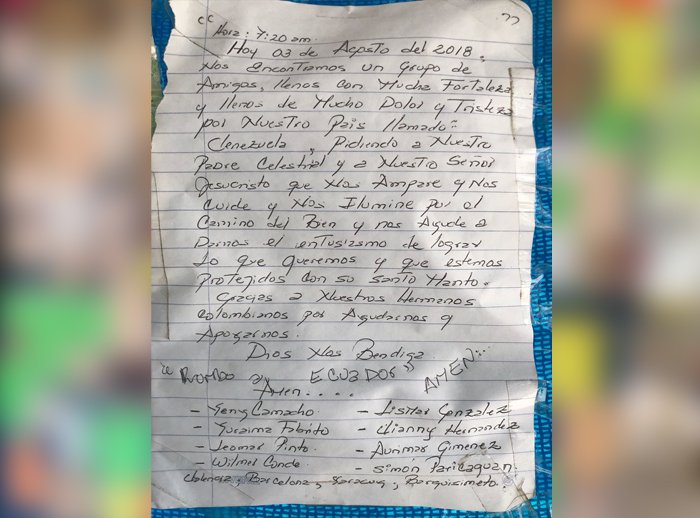 “ ”
Hora: 7:20 am.
Hoy 03 de Agosto del 2018,
Nos Encontramos un Grupo de
Amigos, llenos con Mucha Fortaleza
y llenos de Mucho Dolor y Tristeza
por Nuestro Pais llamado:
Venezuela, Pidiendo a Nuestro
Padre Celestial y a Nuestro Señor
Jesucristo que Nos Ampare y Nos
Cuide y Nos Ilumine por el
Camino del Bien y nos Ayude a
Darnos el entusiasmo de lograr
Lo que queremos y que estemos
Protejidos con su santo Manto.
Gracias a Nuestros Hermanos
Colombianos por Ayudarnos y
Apoyarnos.
Dios Nos Bendiga
“Rumbo a ECUADOR” AMEN...
Amen....
- Yeny Camacho - Lismar Gonzalez
- Yuraima Fabrito - Vianny Hernandez
- Leomar Pinto. - Aunmar Gimenez
- Wilmer Conde. - Simon Paricaguan.
Valencia, Barcelona, Yaracuy, Barquisimeto.